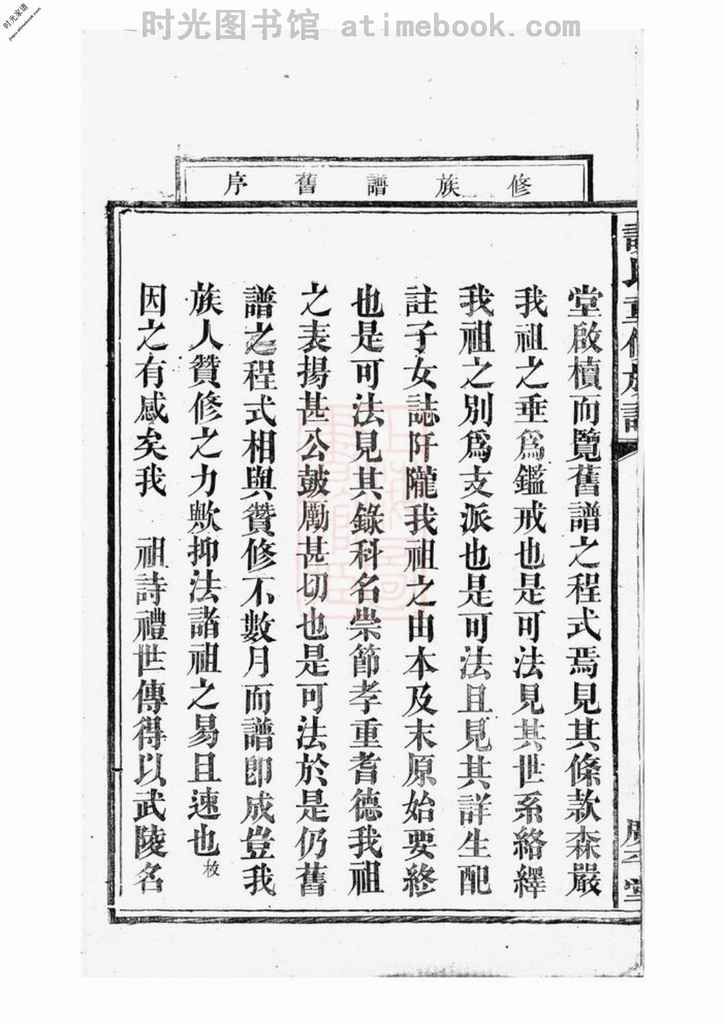 时光图书馆 atimebook.com
时光家谱
修族譜舊序
堂啟櫝而覽舊譜之程式焉見其條款森嚴
我祖之垂爲鑑戒也是可法見其世系絡繹
我祖之別爲支派也是可法且見其詳生配
註子女誌阡隴我祖之由本及末原始要終
也是可法見其錄科名崇節孝重耆德我祖
之表揚甚公鼓勵甚切也是可法於是仍舊
譜之程式相與贊修不數月而譜卽成豈我
族人贊修之力歟抑法諸祖之易且速也枚
因之有感矣我 祖詩禮世傳得以武陵名